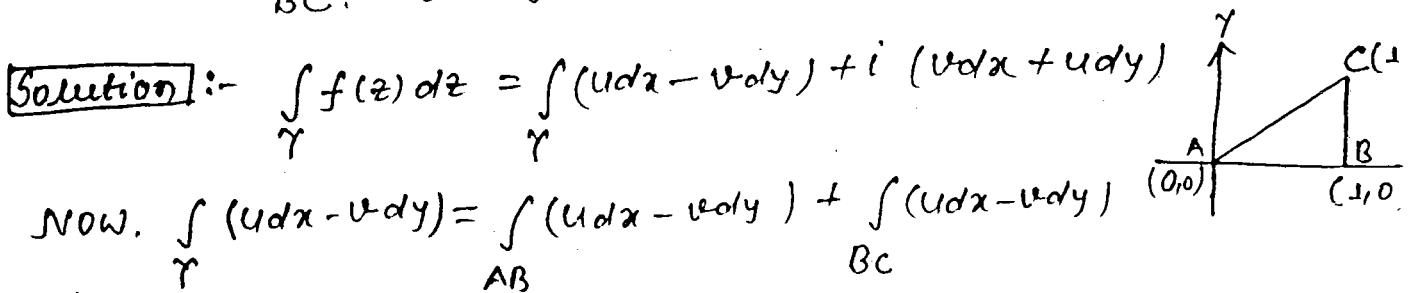 BC.
Solution :- ∫γ f(z) dz = ∫γ (udx - vdy) + i (vdx + udy)
Now. ∫γ (udx - vdy) = ∫AB (udx - vdy) + ∫BC (udx - vdy)
Y
C(1
A
B
(0,0)
(1,0